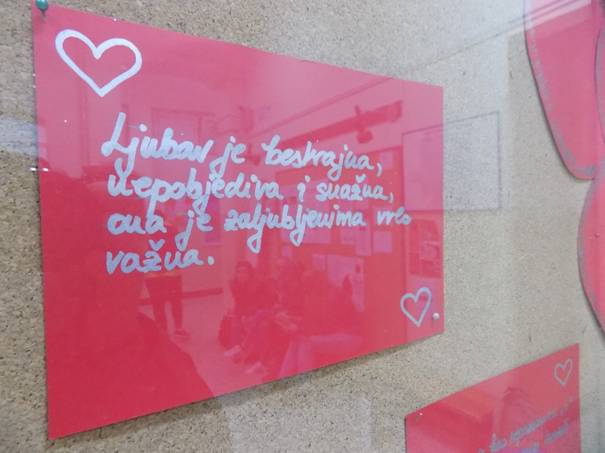 Ljubav je beskrajna,
nepobjediva i snažna,
ona je zaljubljenima vrlo
važna.